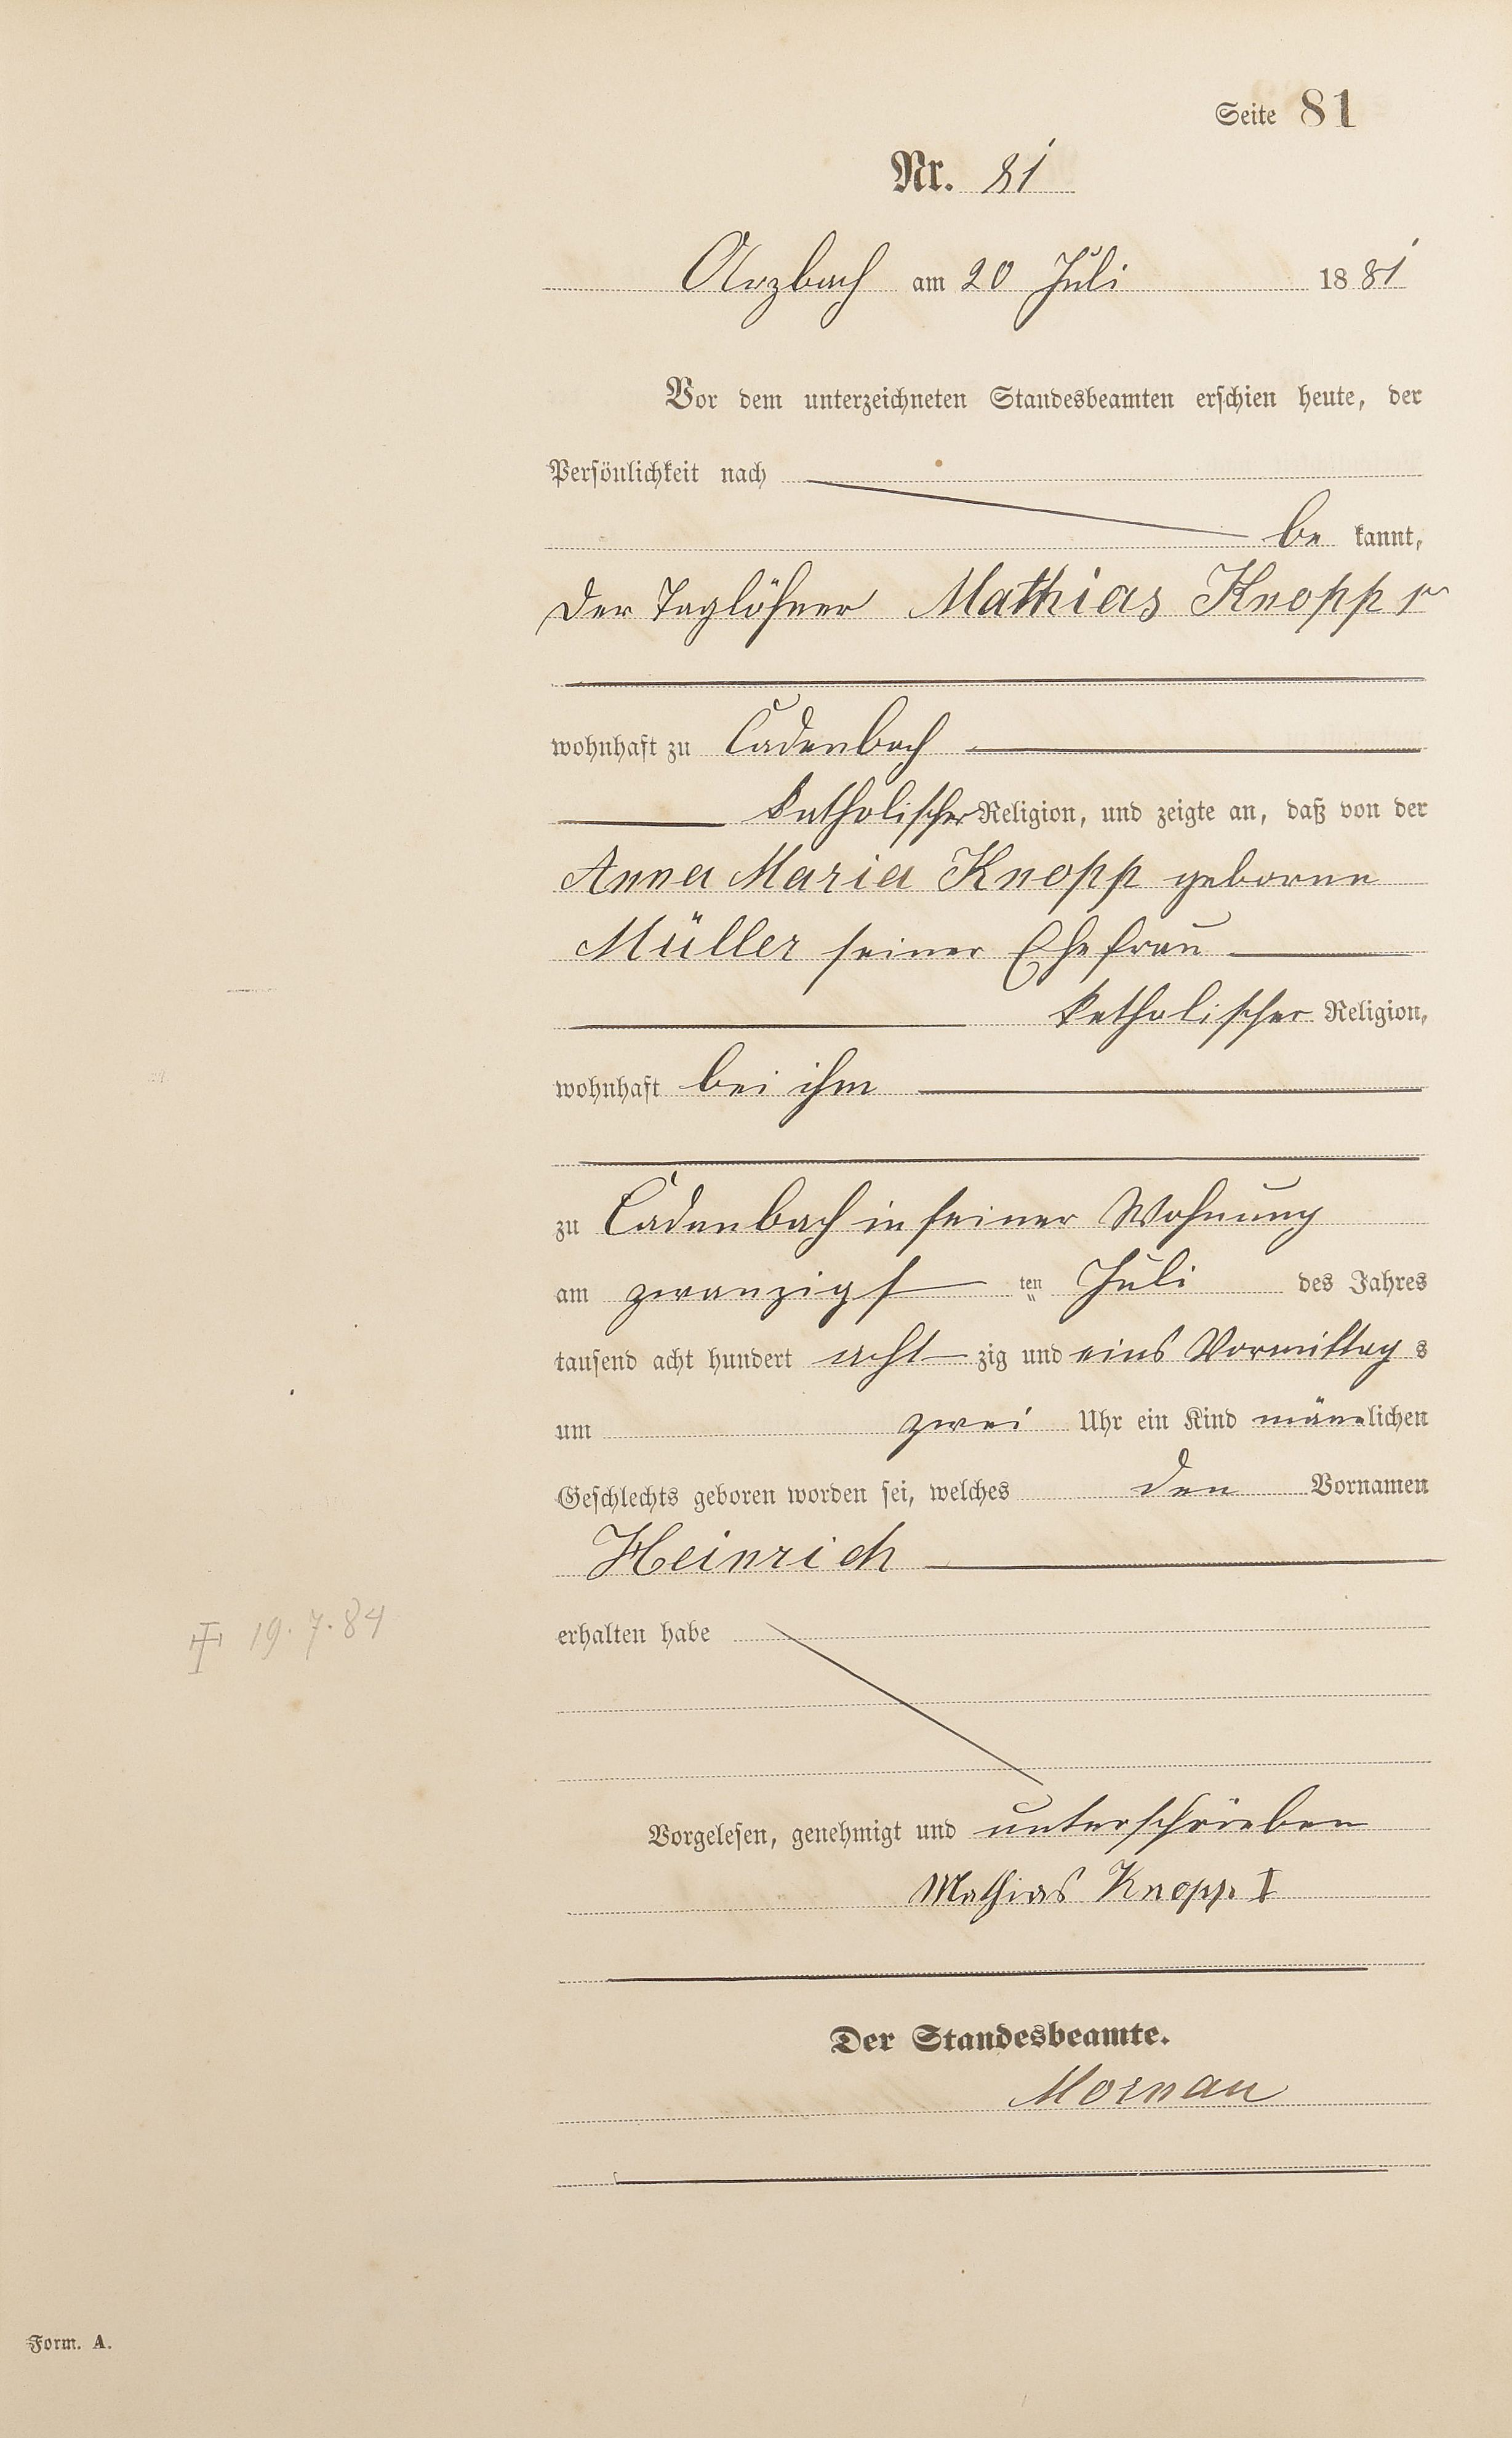 Seite 81
Nr. 81
Arzbach am 20 Juli 1881
Vor dem unterzeichneten Standesbeamten erschien heute, der
Persönlichkeit nach
be kannt,
der Taglöhner Mathias Knopp
wohnhaft zu Cadenbach
katholischer Religion, und zeigte an, daß von der
Anna Maria Knopp geborne
Müller seiner Ehefrau
katholischer Religion,
wohnhaft bei ihm
zu Cadenbach in seiner Wohnung
am zwanzigs ten Juli des Jahres
tausend acht hundert acht zig und eins Vormittag s
um zwei Uhr ein Kind männlichen
Geschlechts geboren worden sei, welches den Vornamen
Heinrich
erhalten habe
19.7.84
Vorgelesen, genehmigt und unterschrieben
Mathias Knopp I
Der Standesbeamte.
Mornau
Form. A.